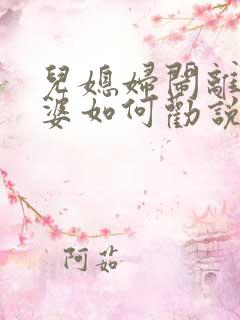 兒媳婦鬧離
婆如何勸說
阿茹